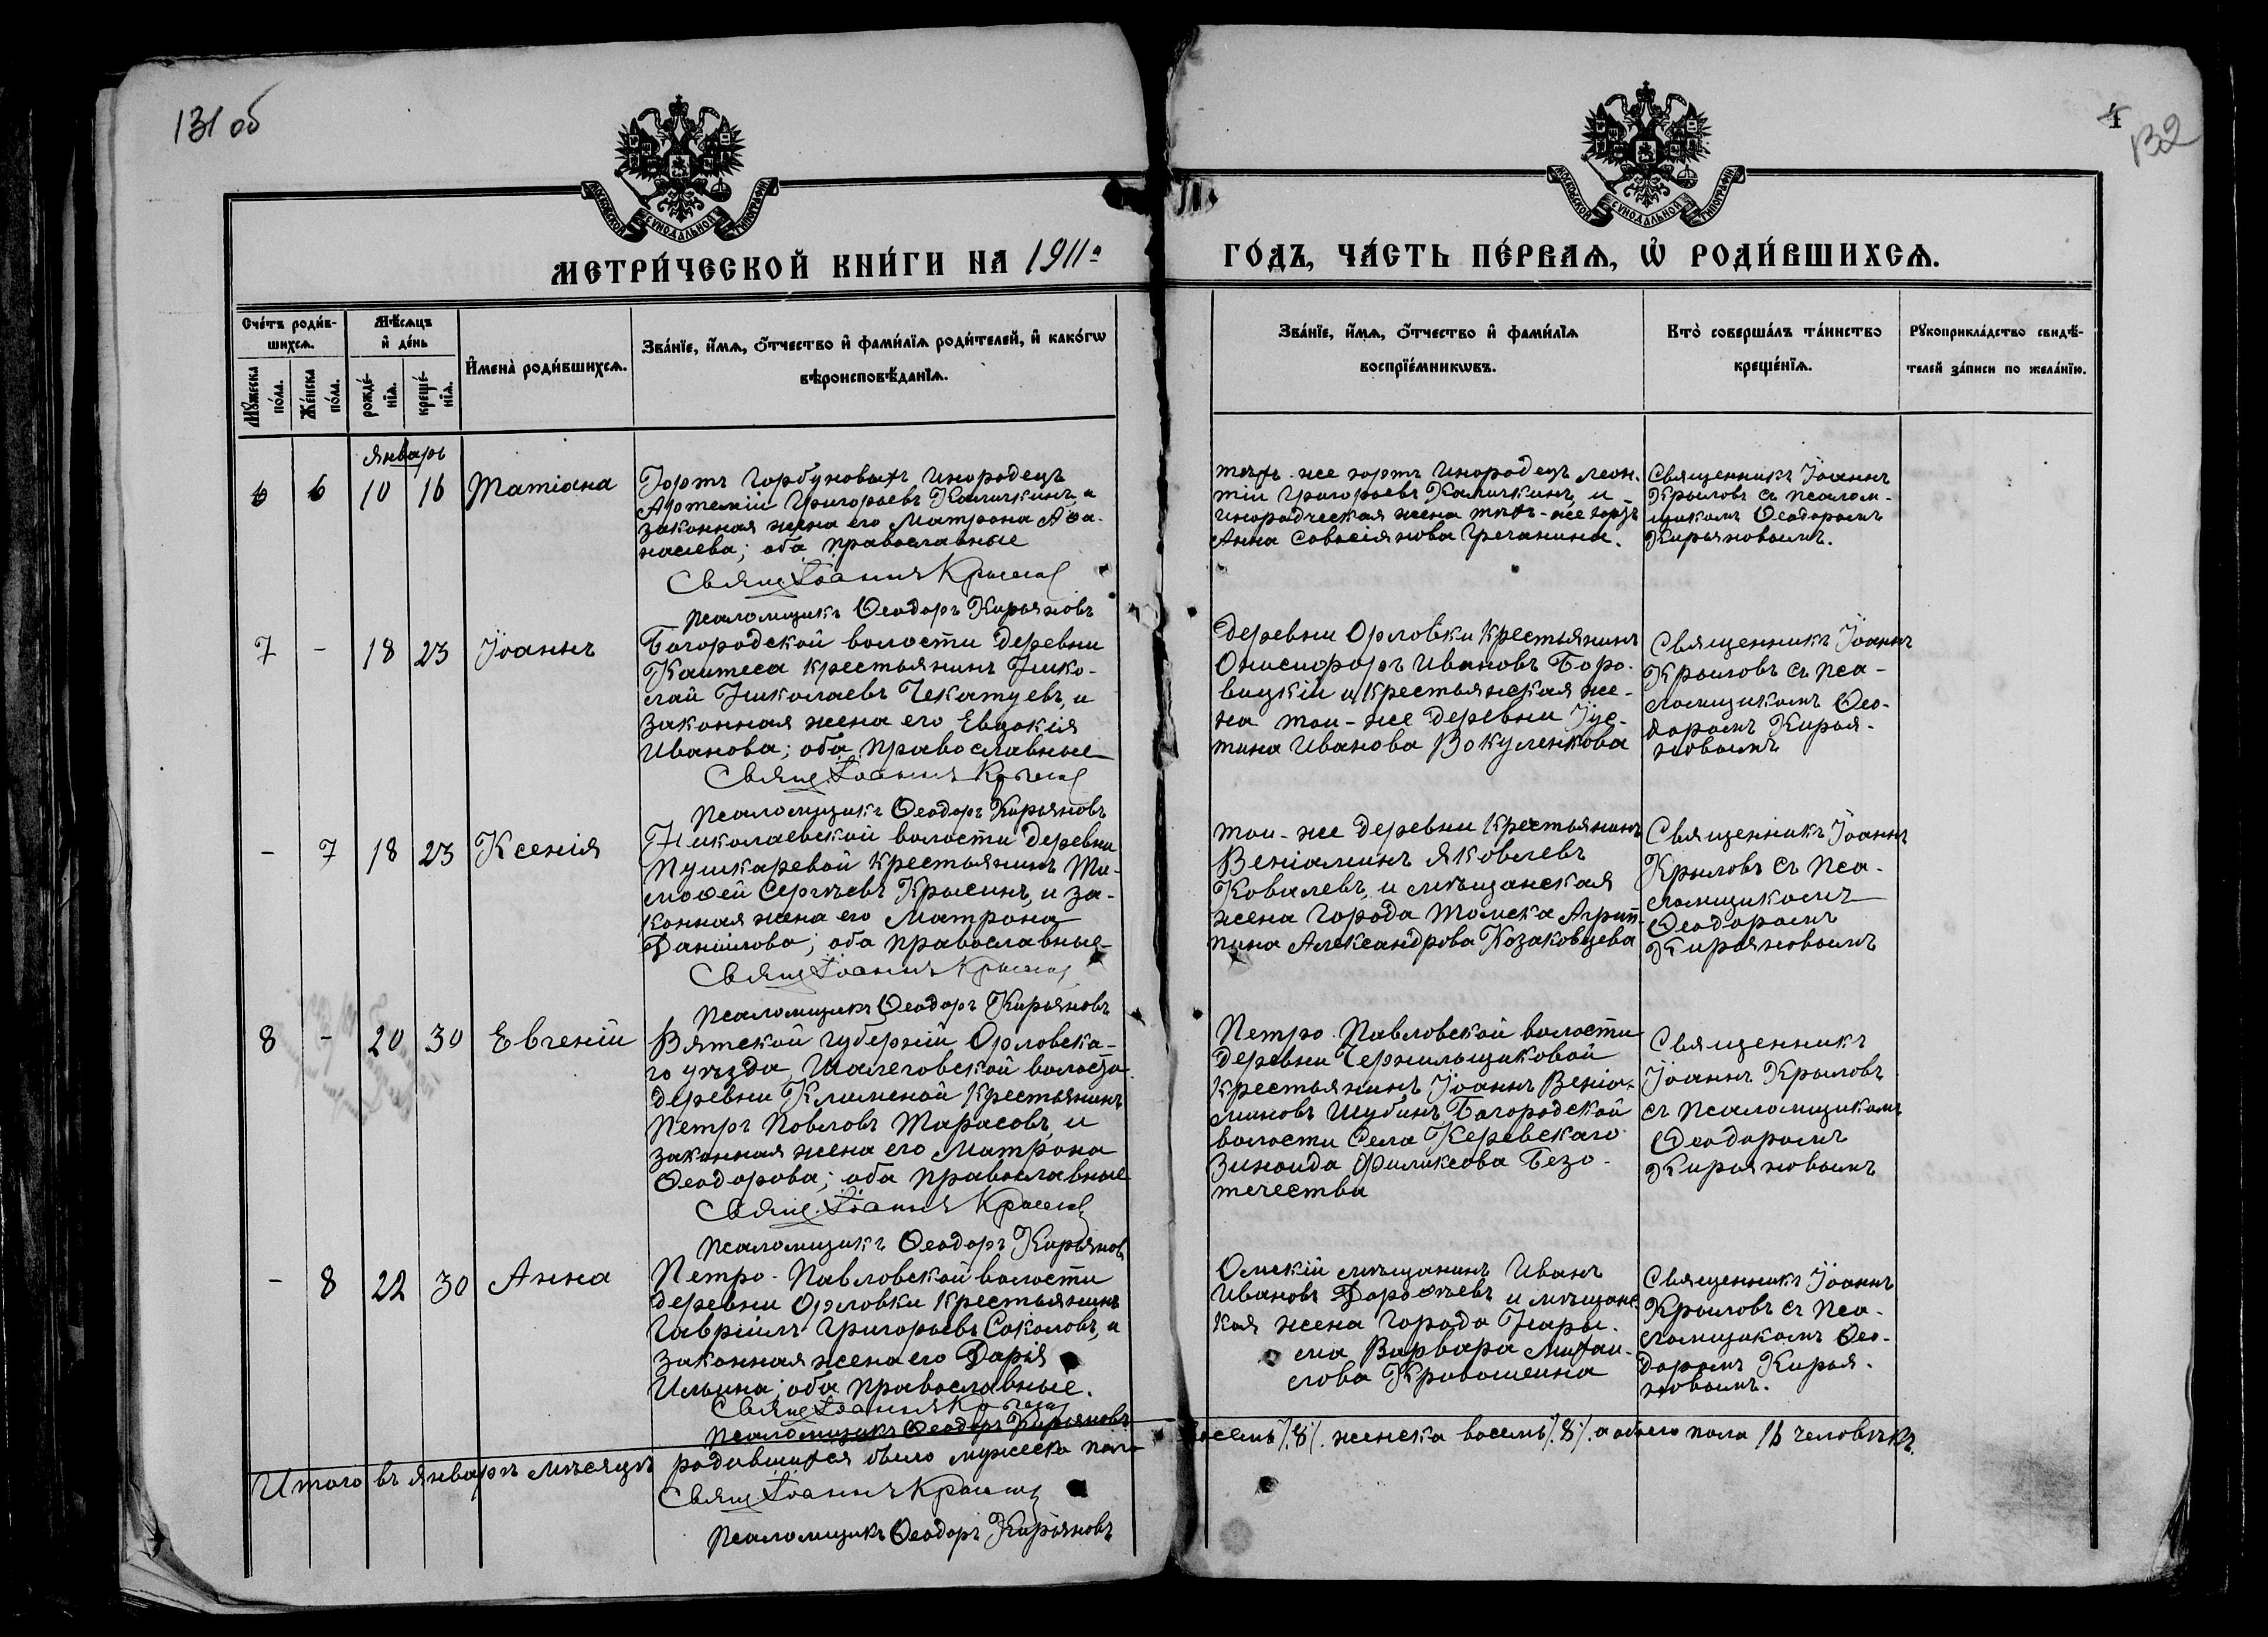 131 об
4
132
МОСКОВСКОЙ СѴНОДАЛЬНОЙ ТИПОГРАФІИ
МОСКОВСКОЙ СѴНОДАЛЬНОЙ ТИПОГРАФІИ
МЕТРИ́ЧЕСКОЙ КНИ́ГИ НА 1911 ГО́ДЪ, ЧА́СТЬ ПЕ́РВАѦ, Ѡ҆ РОДИ́ВШИХСѦ.
Сче́тъ роди́в-
шихсѧ.
Мꙋ́жеска по́ла.
Же́нска по́ла.
Мѣ́сѧцъ
и҆ де́нь
рожде́-
нїѧ.
креще́-
нїѧ.
И҆мена̀ роди́вшихсѧ.
Зва́нїе, и҆́мѧ, ѻ҆́тчество и҆ фами́лїѧ роди́телей, и҆ како́гѡ
вѣроисповѣ́данїѧ.
Зва́нїе, и҆́мѧ, ѻ҆́тчество и҆ фами́лїѧ
воспрїе́мникѡвъ.
Кто̀ соверша́лъ та́инство
креще́нїѧ.
Рꙋкоприкла́дство свидѣ́-
телей за́писи по жела́нїю.
Январь
6 6 10 16 Татіана
Юртъ Горбуновыхъ инородецъ
Артемій Григорьевъ Камичкинъ, и
законная жена его Матрона Аѳа-
насіева; оба православные
Свящ Іоаннъ Крылов
Псаломщикъ Ѳеодоръ Кирьяновъ
тѣхъ-же юртъ инородецъ Леон-
тій Григорьевъ Камичкинъ, и
инородческая жена тѣхъ-же юртъ
Анна Савосіянова Гречанина.
Священникъ Іоаннъ
Крыловъ съ псалом-
щикомъ Ѳеодоромъ
Кирьяновымъ.
7 - 18 23 Іоаннъ
Богородской волости деревни
Каитеса крестьянинъ Нико-
лай Николаевъ Чекатуевъ, и
законная жена его Евдокія
Иванова; оба православные
Свящ Іоаннъ Крылов
Псаломщикъ Ѳеодоръ Кирьяновъ
деревни Орловки крестьянинъ
Онисифоръ Ивановъ Боро-
вицкій и крестьянская же-
на той-же деревни Іус-
тина Иванова Вокуленкова
Священникъ Іоаннъ
Крыловъ съ пса-
ломщикомъ Ѳео-
доромъ Кирья-
новымъ
- 7 18 23 Ксенія
Николаевской волости деревни
Пушкаревой крестьянинъ Ти-
моѳей Сергѣевъ Крысинъ, и за-
конная жена его Матрона
Даніилова; оба православные
Свящ Іоаннъ Крылов
Псаломщикъ Ѳеодоръ Кирьяновъ
той-же деревни крестьянинъ
Веніаминъ Яковлевъ
Ковалевъ, и мѣщанская
жена города Томска Агрип-
пина Александрова Козаковцева
Священникъ Іоаннъ
Крыловъ съ пса-
ломщикомъ
Ѳеодоромъ
Кирьяновымъ
8 - 20 30 Евгеній
Вятской губерніи Орловска-
го уѣзда, Шалеговской волости
деревни Климской крестьянинъ
Петръ Повловъ Тарасовъ, и
законная жена его Матрона
Ѳеодорова; оба православные
Свящ. Іоаннъ Крылов
Псаломщикъ Ѳеодоръ Кирьяновъ
Петро-Павловской волости
деревни Чернильщиковой
крестьянинъ Іоаннъ Веніа-
миновъ Шубинъ Богородской
волости села Керевскаго
Зиноида Филиксова Безо-
течества
Священникъ
Іоаннъ Крыловъ
съ псаломщикомъ
Ѳеодоромъ
Кирьяновымъ
- 8 22 30 Анна
Петро-Павловской волости
деревни Орловки крестьянинъ
Гавріилъ Григорьевъ Соколовъ, и
законная жена его Дарія
Ильина; оба православные.
Свящ Іоаннъ Крылов
Псаломщикъ Ѳеодоръ Кирьяновъ
Омскій мѣщанинъ Иванъ
Ивановъ Дороѳѣевъ и мѣщанс-
кая жена города Нары-
ма Варвара Михаи-
лова Кривошеина
Священникъ Іоаннъ
Крыловъ съ пса-
ломщикомъ Ѳео-
доромъ Кирья-
новымъ.
Итого въ январѣ мѣсяцѣ родившихся было мужеска пола восемь /.8/. женска восемь /.8/. а обоего пола 16 человѣкъ.
Свящ Іоаннъ Крылов
Псаломщикъ Ѳеодоръ Кирьяновъ